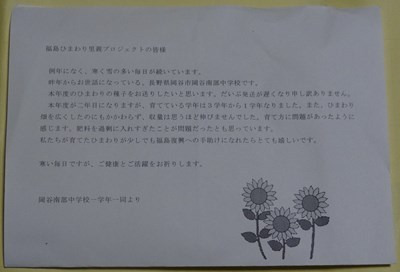 福島ひまわり里親プロジェクトの皆様
例年になく、寒く雪の多い毎日が続いています。
昨年からお世話になっている、長野県岡谷市岡谷南部中学校です。
本年度のひまわりの種子をお送りしたいと思います。だいぶ発送が遅くなり申し訳ありません。
本年度が二年目になりますが、育てている学年は3学年から1学年なりました。また、ひまわり
畑を広くしたのにもかかわらず、収量は思うほど伸びませんでした。育て方に問題があったように
感じます。肥料を過剰に入れすぎたことが問題だったとも思っています。
私たちが育てたひまわりが少しでも福島復興への手助けになれたらとても嬉しいです。
寒い毎日ですが、ご健康とご活躍をお祈りします。
岡谷南部中学校一学年一同より